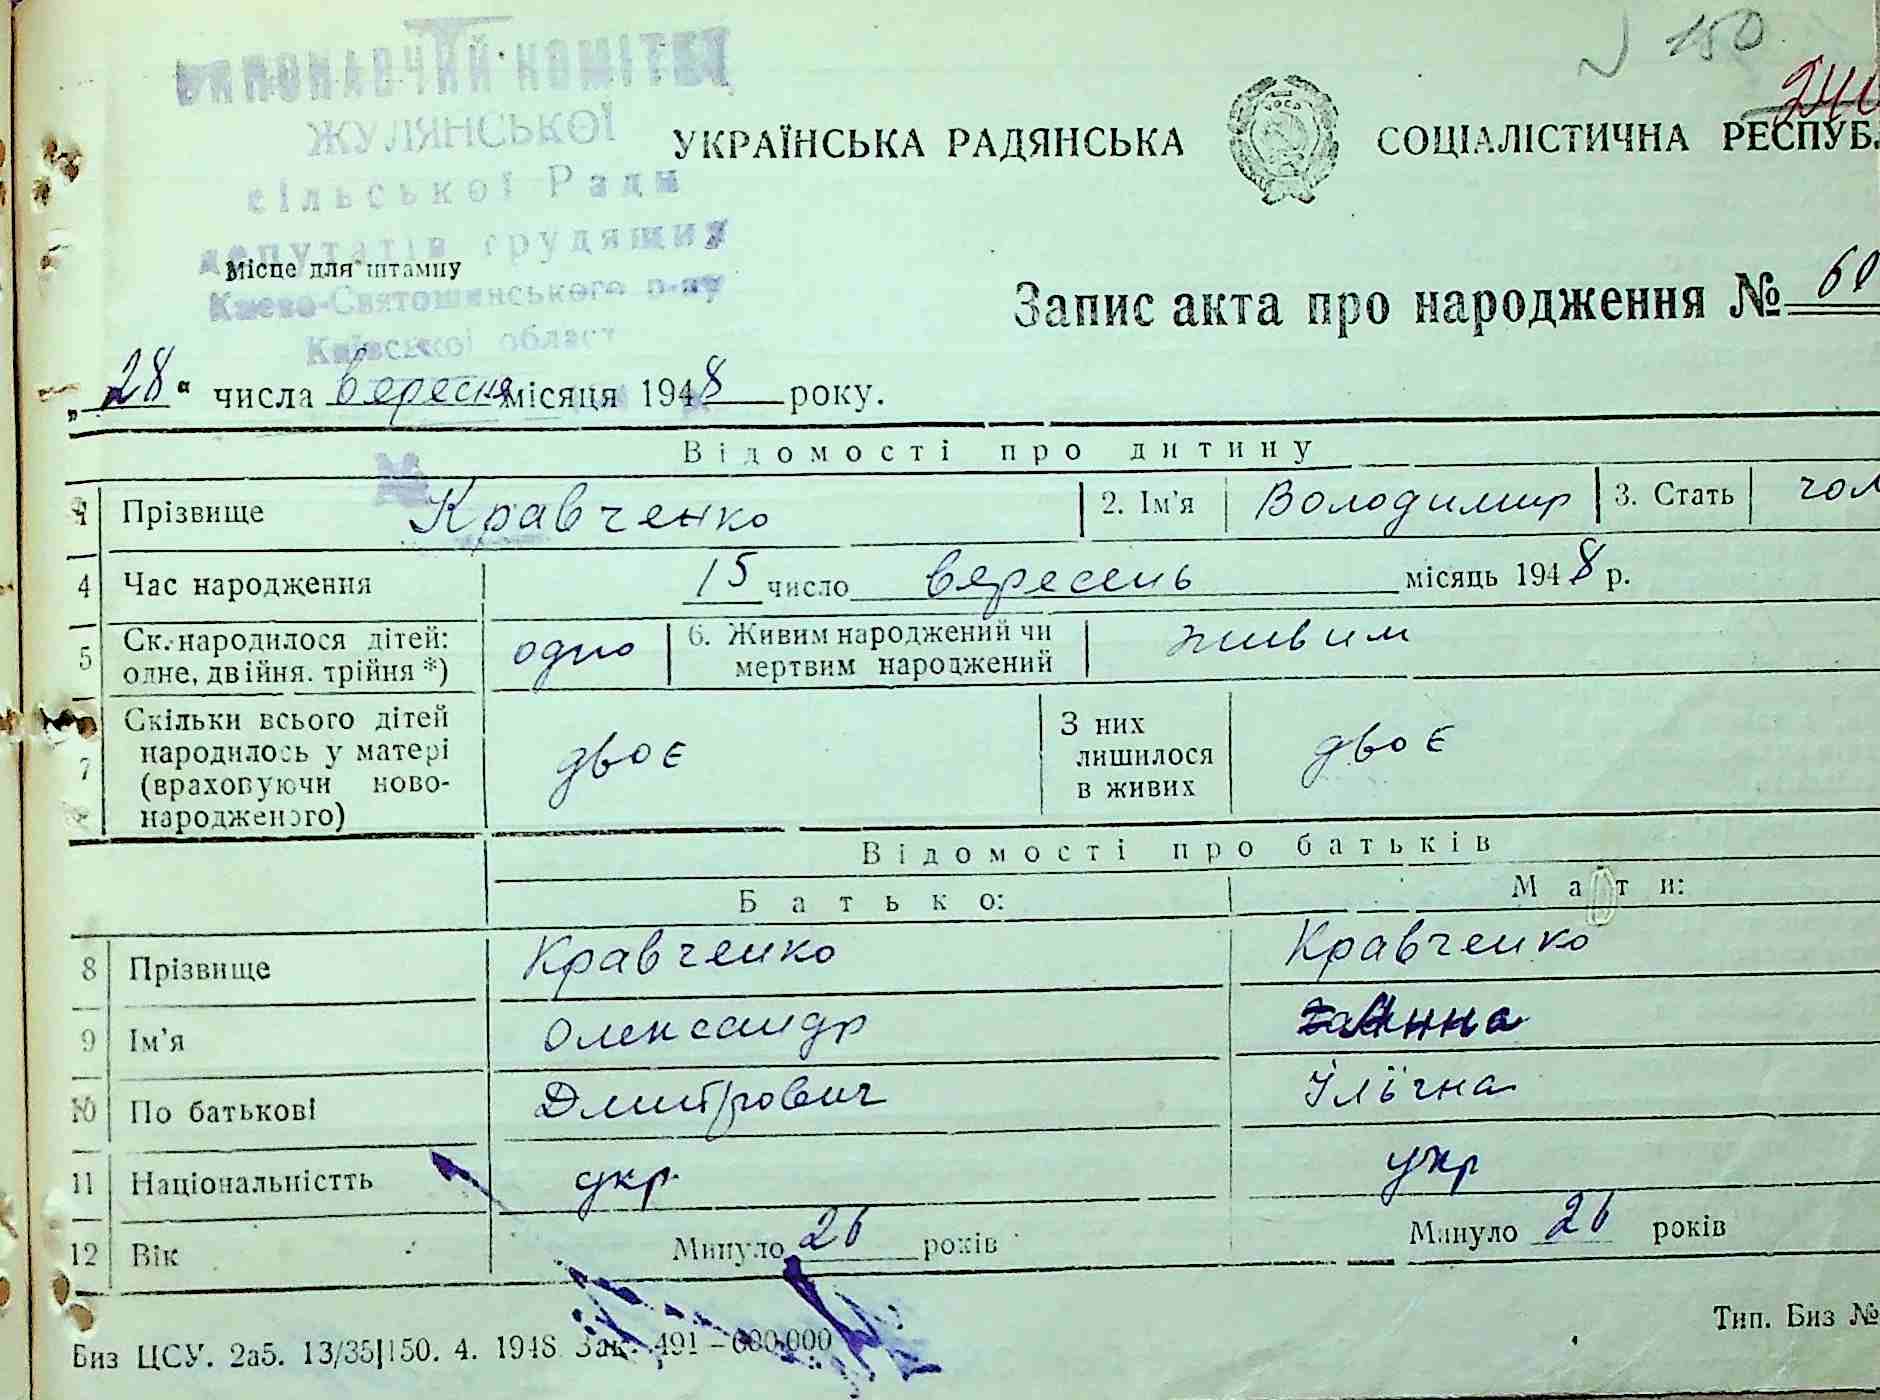 № 150
ВИКОНАВЧИЙ КОМІТЕТ
ЖУЛЯНСЬКОЇ
сільської Ради
депутатів трудящих
Києво-Святошинського р-ну
Київської област
Місце для штампу
УКРАЇНСЬКА РАДЯНСЬКА СОЦІАЛІСТИЧНА РЕСПУБ
Запис акта про народження № 60
„28“ числа вересня місяця 1948 року.
Відомості про дитину
1 Прізвище Кравченко 2. Ім’я Володимир 3. Стать чол
4 Час народження 15 число вересень місяць 1948 р.
5 Ск. народилося дітей: одне, двійня. трійня *) одно 6. Живим народжений чи мертвим народжений живим
7 Скільки всього дітей народилось у матері (враховуючи ново-народженого) двоє З них лишилося в живих двоє
Відомості про батьків
Батько: Мати:
8 Прізвище Кравченко Кравченко
9 Ім’я Олександр Анна
10 По батькові Дмитрович Ілїчна
11 Національністть укр. укр
12 Вік Минуло 26 років Минуло 26 років
Биз ЦСУ. 2а5. 13/35|150. 4. 1948 Зак. 491–600.000
Тип. Биз №